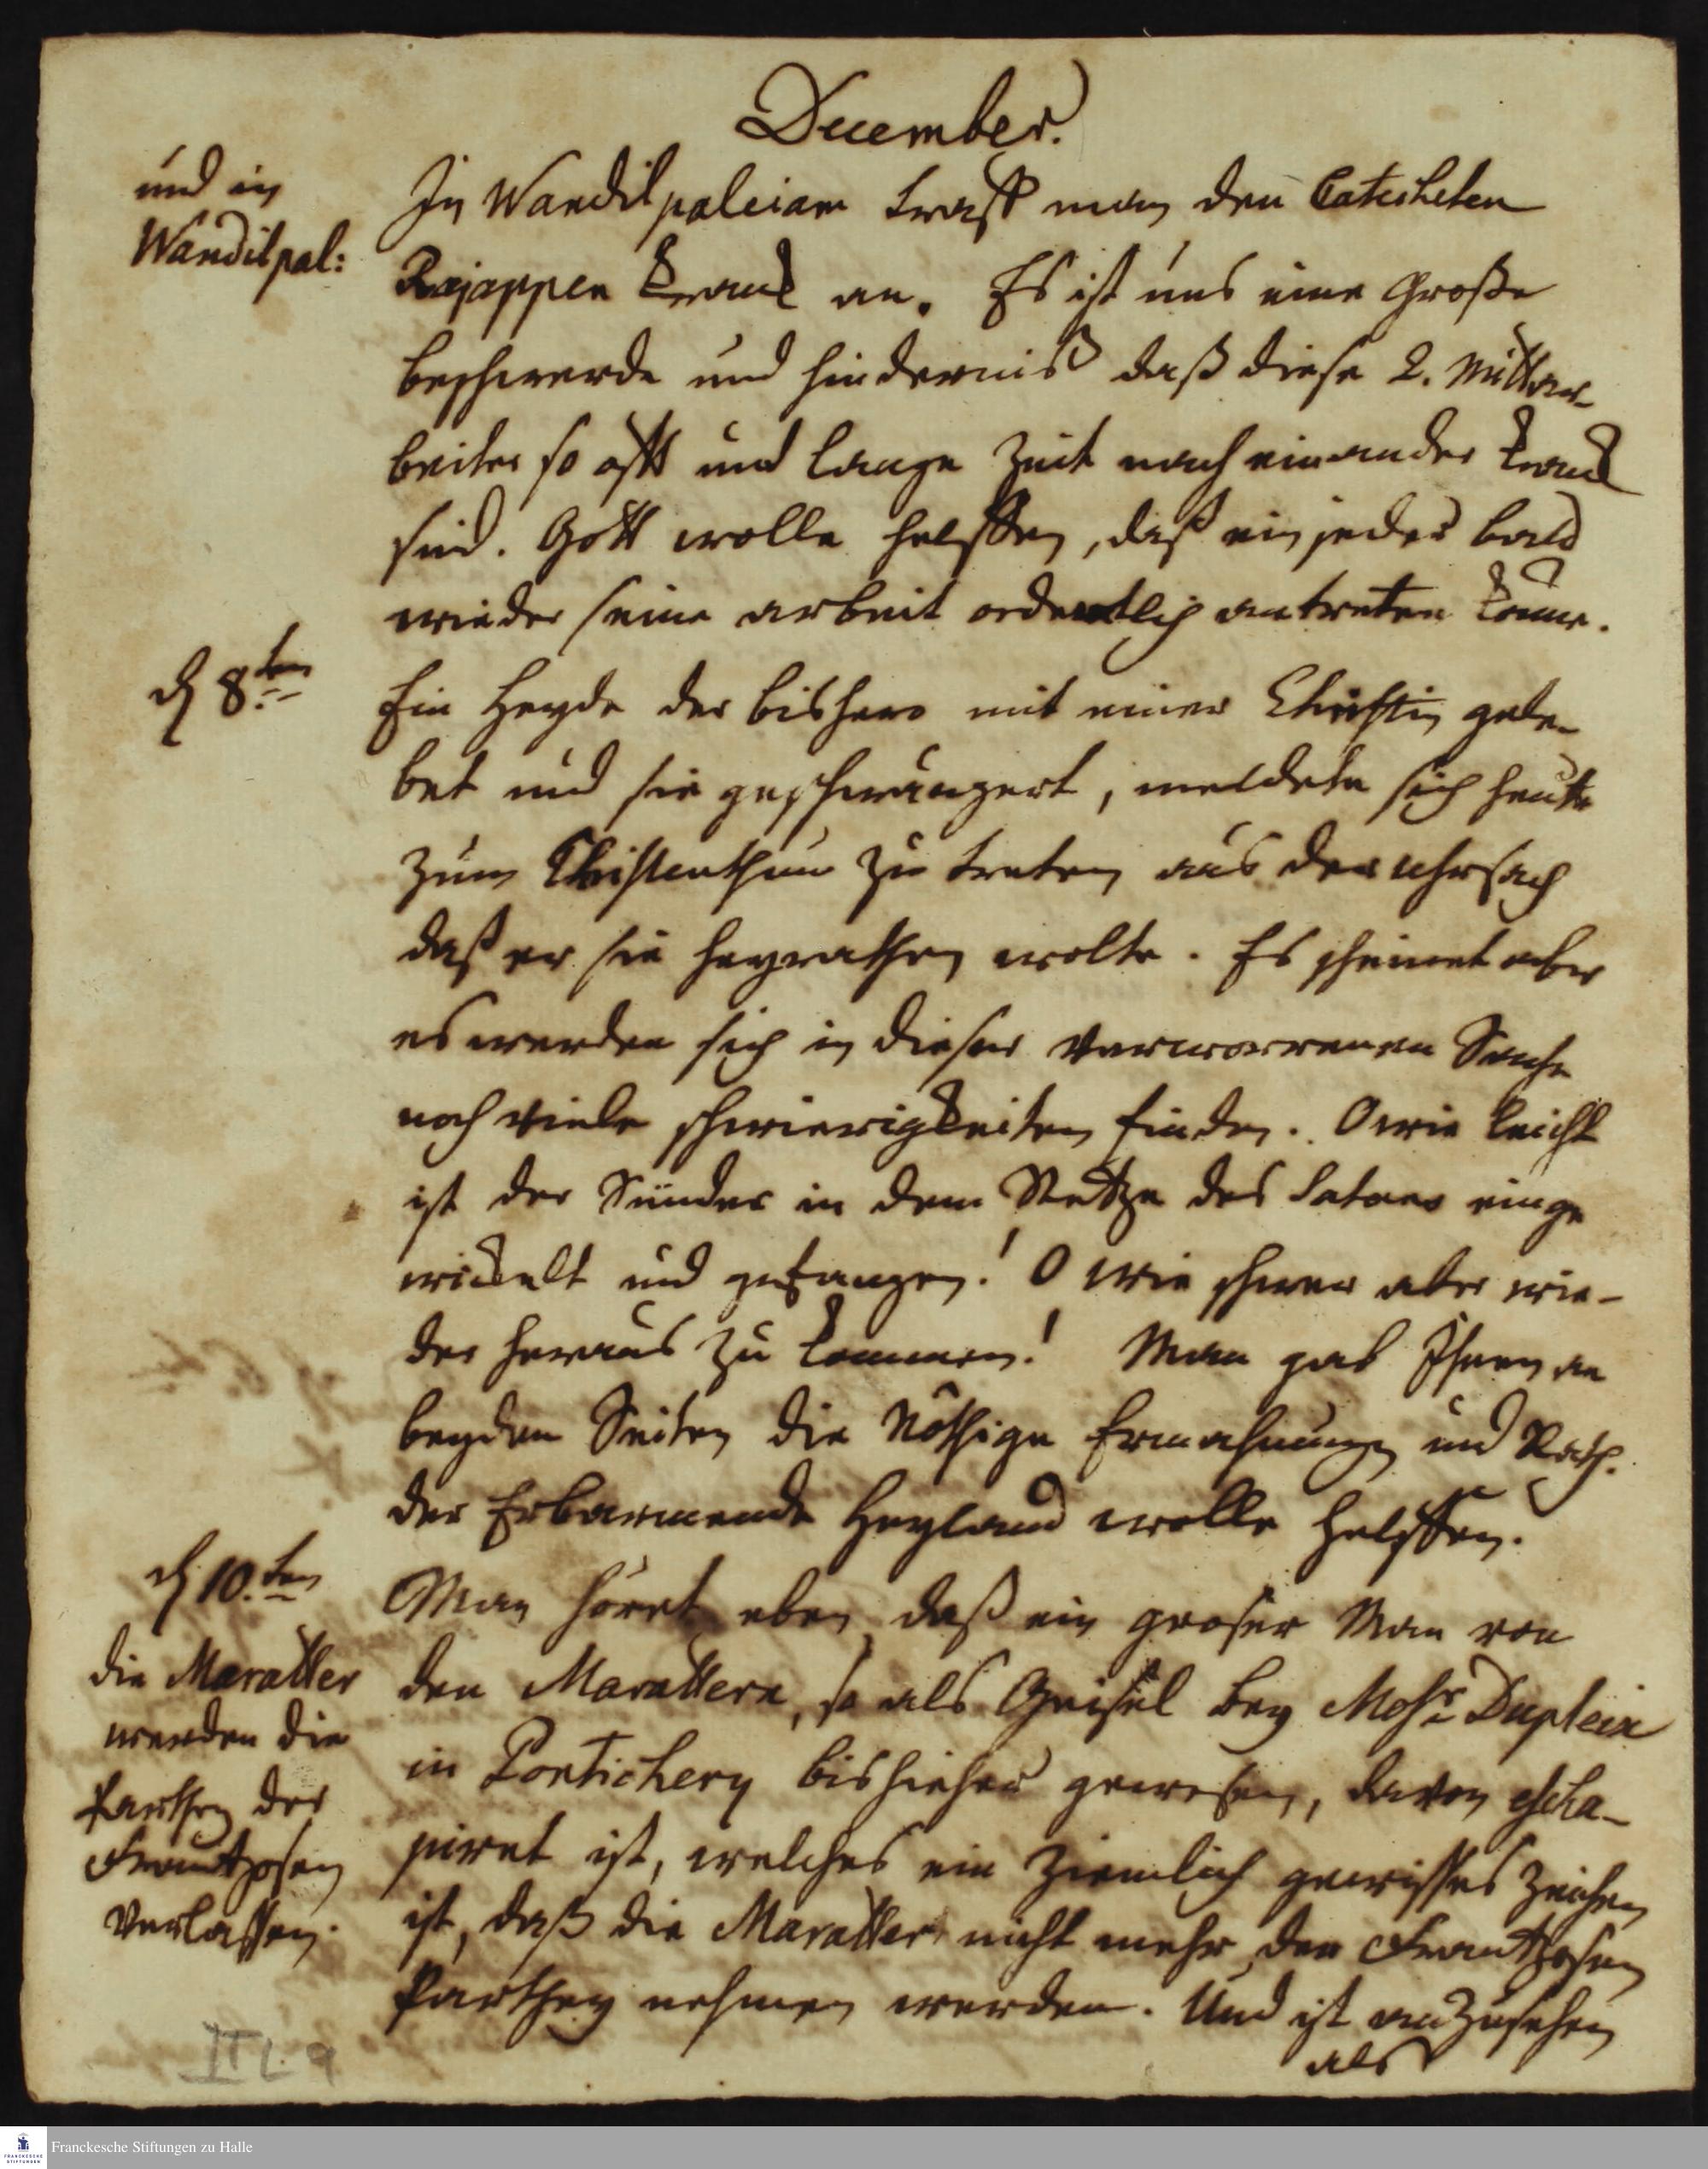 December.
und in
Wandilpal:
In Wandilpaleiam traff man den Catecheten
Rajappen kranck an. Es ist uns eine Große
beschwerde und hindernis daß diese 2. Mittar-
beiter so offt und lange Zeit nach einander kranck
sind. Gott wolle helffen, daß ein jeder bald
wieder seine arbeit ordentlich antreten könne.
d 8.ten
Ein Heyde der bishero mit einer Christin gele-
bet und sie geschwängert, meldete sich heute
zum Christenthum zu treten aus der uhrsach
daß er sie heyrathen wolte. Es scheinet aber
es werden sich in dieser verworrenen Sache
noch viele schwierigkeiten finden. O wie leicht
ist der Sünder in dem Netze des Satans einge
wickelt und gefangen! O wie schwer aber wie-
der heraus zu kommen! Man gab Ihnen an
beyden Seiten die Nöthige Ermahnung und Rath.
der Erbarmende Heyland wolle helffen.
d 10.ten
die Maratter
werden die
Parthey der
Frantzosen
verlassen.
Man höret eben daß ein groser Man von
den Marattern, so als Geisel bey Mosr Dupleix
in Pontichery bishieher gewesen, davon escha-
piret ist, welches ein ziemlich gewisses Zeichen
ist, daß die Maratter nicht mehr der Frantzosen
Parthey nehmen werden. Und ist anzusehen
als
Franckesche Stiftungen zu Halle
FRANCKESCHE
STIFTUNGEN